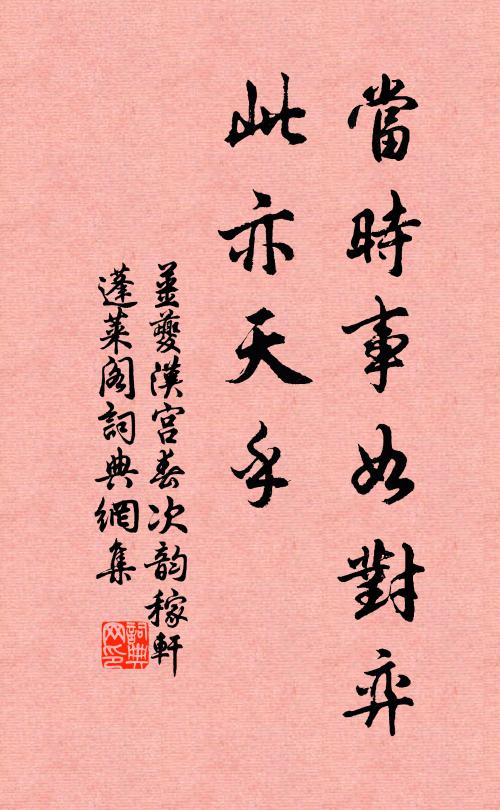 當時事如對弈
此亦天乎
姜夔漢宮春次韵稼軒
蓬萊閣詞典網集
詞典网印